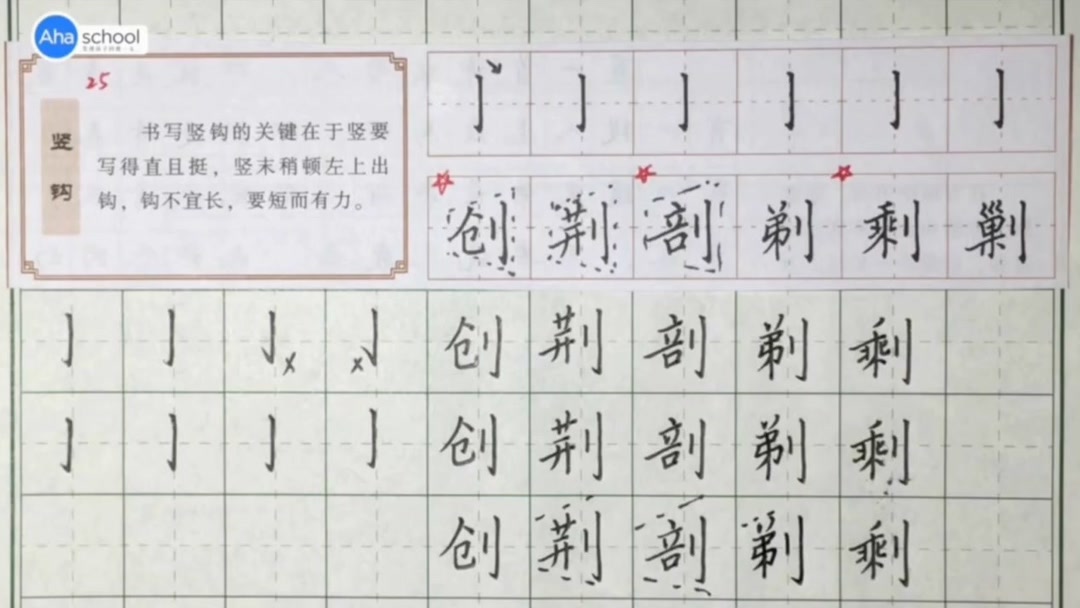 Aha school
25
竖钩
书写竖钩的关键在于竖要
写得直且挺，竖末稍顿左上出
钩，钩不宜长，要短而有力。
亅 亅 亅 亅 亅 亅
创 荆 剖 剃 剩 剿
亅 亅 亅 亅 创 荆 剖 剃 剩
x x
亅 亅 亅 亅 创 荆 剖 剃 剩
创 荆 剖 剃 剩